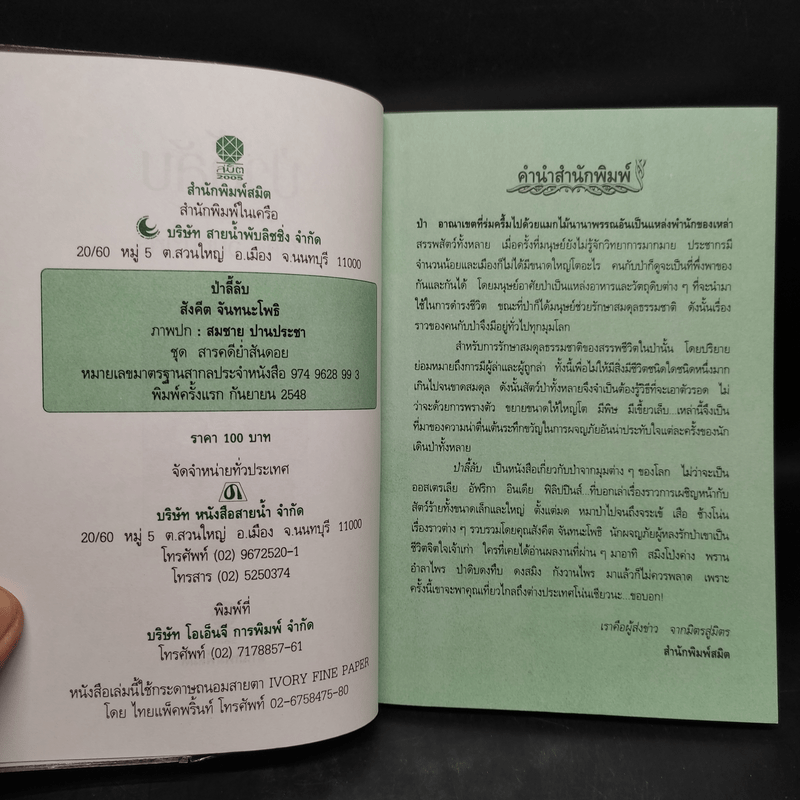 สมิต
2005
สำนักพิมพ์สมิต
สำนักพิมพ์ในเครือ
บริษัท สายน้ำพับลิชชิ่ง จำกัด
20/60 หมู่ 5 ต.สวนใหญ่ อ.เมือง จ.นนทบุรี 11000
ป่าลี้ลับ
สังคีต จันทนะโพธิ
ภาพปก : สมชาย ปานประชา
ชุด สารคดีย่ำสันดอย
หมายเลขมาตรฐานสากลประจำหนังสือ 974 9628 99 3
พิมพ์ครั้งแรก กันยายน 2548
ราคา 100 บาท
จัดจำหน่ายทั่วประเทศ
บริษัท หนังสือสายน้ำ จำกัด
20/60 หมู่ 5 ต.สวนใหญ่ อ.เมือง จ.นนทบุรี 11000
โทรศัพท์ (02) 9672520-1
โทรสาร (02) 5250374
พิมพ์ที่
บริษัท โอเอ็นจี การพิมพ์ จำกัด
โทรศัพท์ (02) 7178857-61
หนังสือเล่มนี้ใช้กระดาษถนอมสายตา IVORY FINE PAPER
โดย ไทยแพ็คพริ้นท์ โทรศัพท์ 02-6758475-80
คำนำสำนักพิมพ์
ป่า อาณาเขตที่ร่มครึ้มไปด้วยแมกไม้นานาพรรณอันเป็นแหล่งพำนักของเหล่า
สรรพสัตว์ทั้งหลาย เมื่อครั้งที่มนุษย์ยังไม่รู้จักวิทยาการมากมาย ประชากรมี
จำนวนน้อยและเมืองก็ไม่ได้มีขนาดใหญ่โตอะไร คนกับป่าก็ดูจะเป็นที่พึ่งพาของ
กันและกันได้ โดยมนุษย์อาศัยป่าเป็นแหล่งอาหารและวัตถุดิบต่าง ๆ ที่จะนำมา
ใช้ในการดำรงชีวิต ขณะที่ป่าก็ได้มนุษย์ช่วยรักษาสมดุลธรรมชาติ ดังนั้นเรื่อง
ราวของคนกับป่าจึงมีอยู่ทั่วไปทุกมุมโลก
สำหรับการรักษาสมดุลธรรมชาติของสรรพชีวิตในป่านั้น โดยปริยาย
ย่อมหมายถึงการมีผู้ล่าและผู้ถูกล่า ทั้งนี้เพื่อไม่ให้มีสิ่งมีชีวิตชนิดใดชนิดหนึ่งมาก
เกินไปจนขาดสมดุล ดังนั้นสัตว์ป่าทั้งหลายจึงจำเป็นต้องรู้วิธีที่จะเอาตัวรอด ไม่
ว่าจะด้วยการพรางตัว ขยายขนาดให้ใหญ่โต มีพิษ มีเขี้ยวเล็บ...เหล่านี้จึงเป็น
ที่มาของความน่าตื่นเต้นระทึกขวัญในการผจญภัยอันน่าประทับใจแต่ละครั้งของนัก
เดินป่าทั้งหลาย
ป่าลี้ลับ เป็นหนังสือเกี่ยวกับป่าจากมุมต่าง ๆ ของโลก ไม่ว่าจะเป็น
ออสเตรเลีย อัฟริกา อินเดีย ฟิลิปปินส์...ที่บอกเล่าเรื่องราวการเผชิญหน้ากับ
สัตว์ร้ายทั้งขนาดเล็กและใหญ่ ตั้งแต่มด หมาป่าไปจนถึงจระเข้ เสือ ช้างโน่น
เรื่องราวต่าง ๆ รวบรวมโดยคุณสังคีต จันทนะโพธิ นักผจญภัยผู้หลงรักป่าเขาเป็น
ชีวิตจิตใจเจ้าเก่า ใครที่เคยได้อ่านผลงานที่ผ่าน ๆ มาอาทิ สมิงโป่งค่าง พราน
อำลาไพร ป่าดิบดงทึบ ดงสมิง กังวานไพร มาแล้วก็ไม่ควรพลาด เพราะ
ครั้งนี้เขาจะพาคุณเที่ยวไกลถึงต่างประเทศโน่นเชียวนะ...ขอบอก!
เราคือผู้ส่งข่าว จากมิตรสู่มิตร
สำนักพิมพ์สมิต